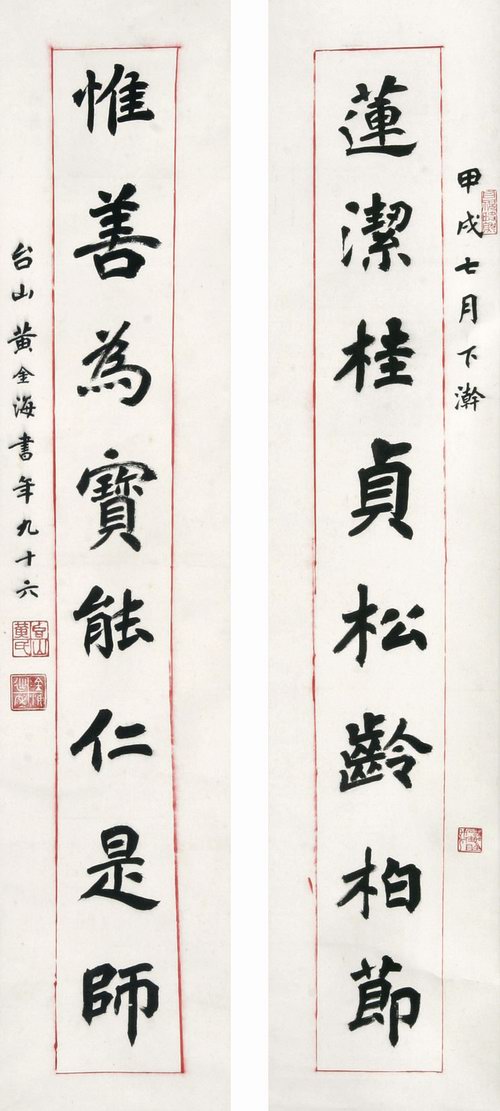 甲戌七月下澣
蓮潔桂貞松齡柏節
惟善為寶能仁是師
台山黄金海書年九十六